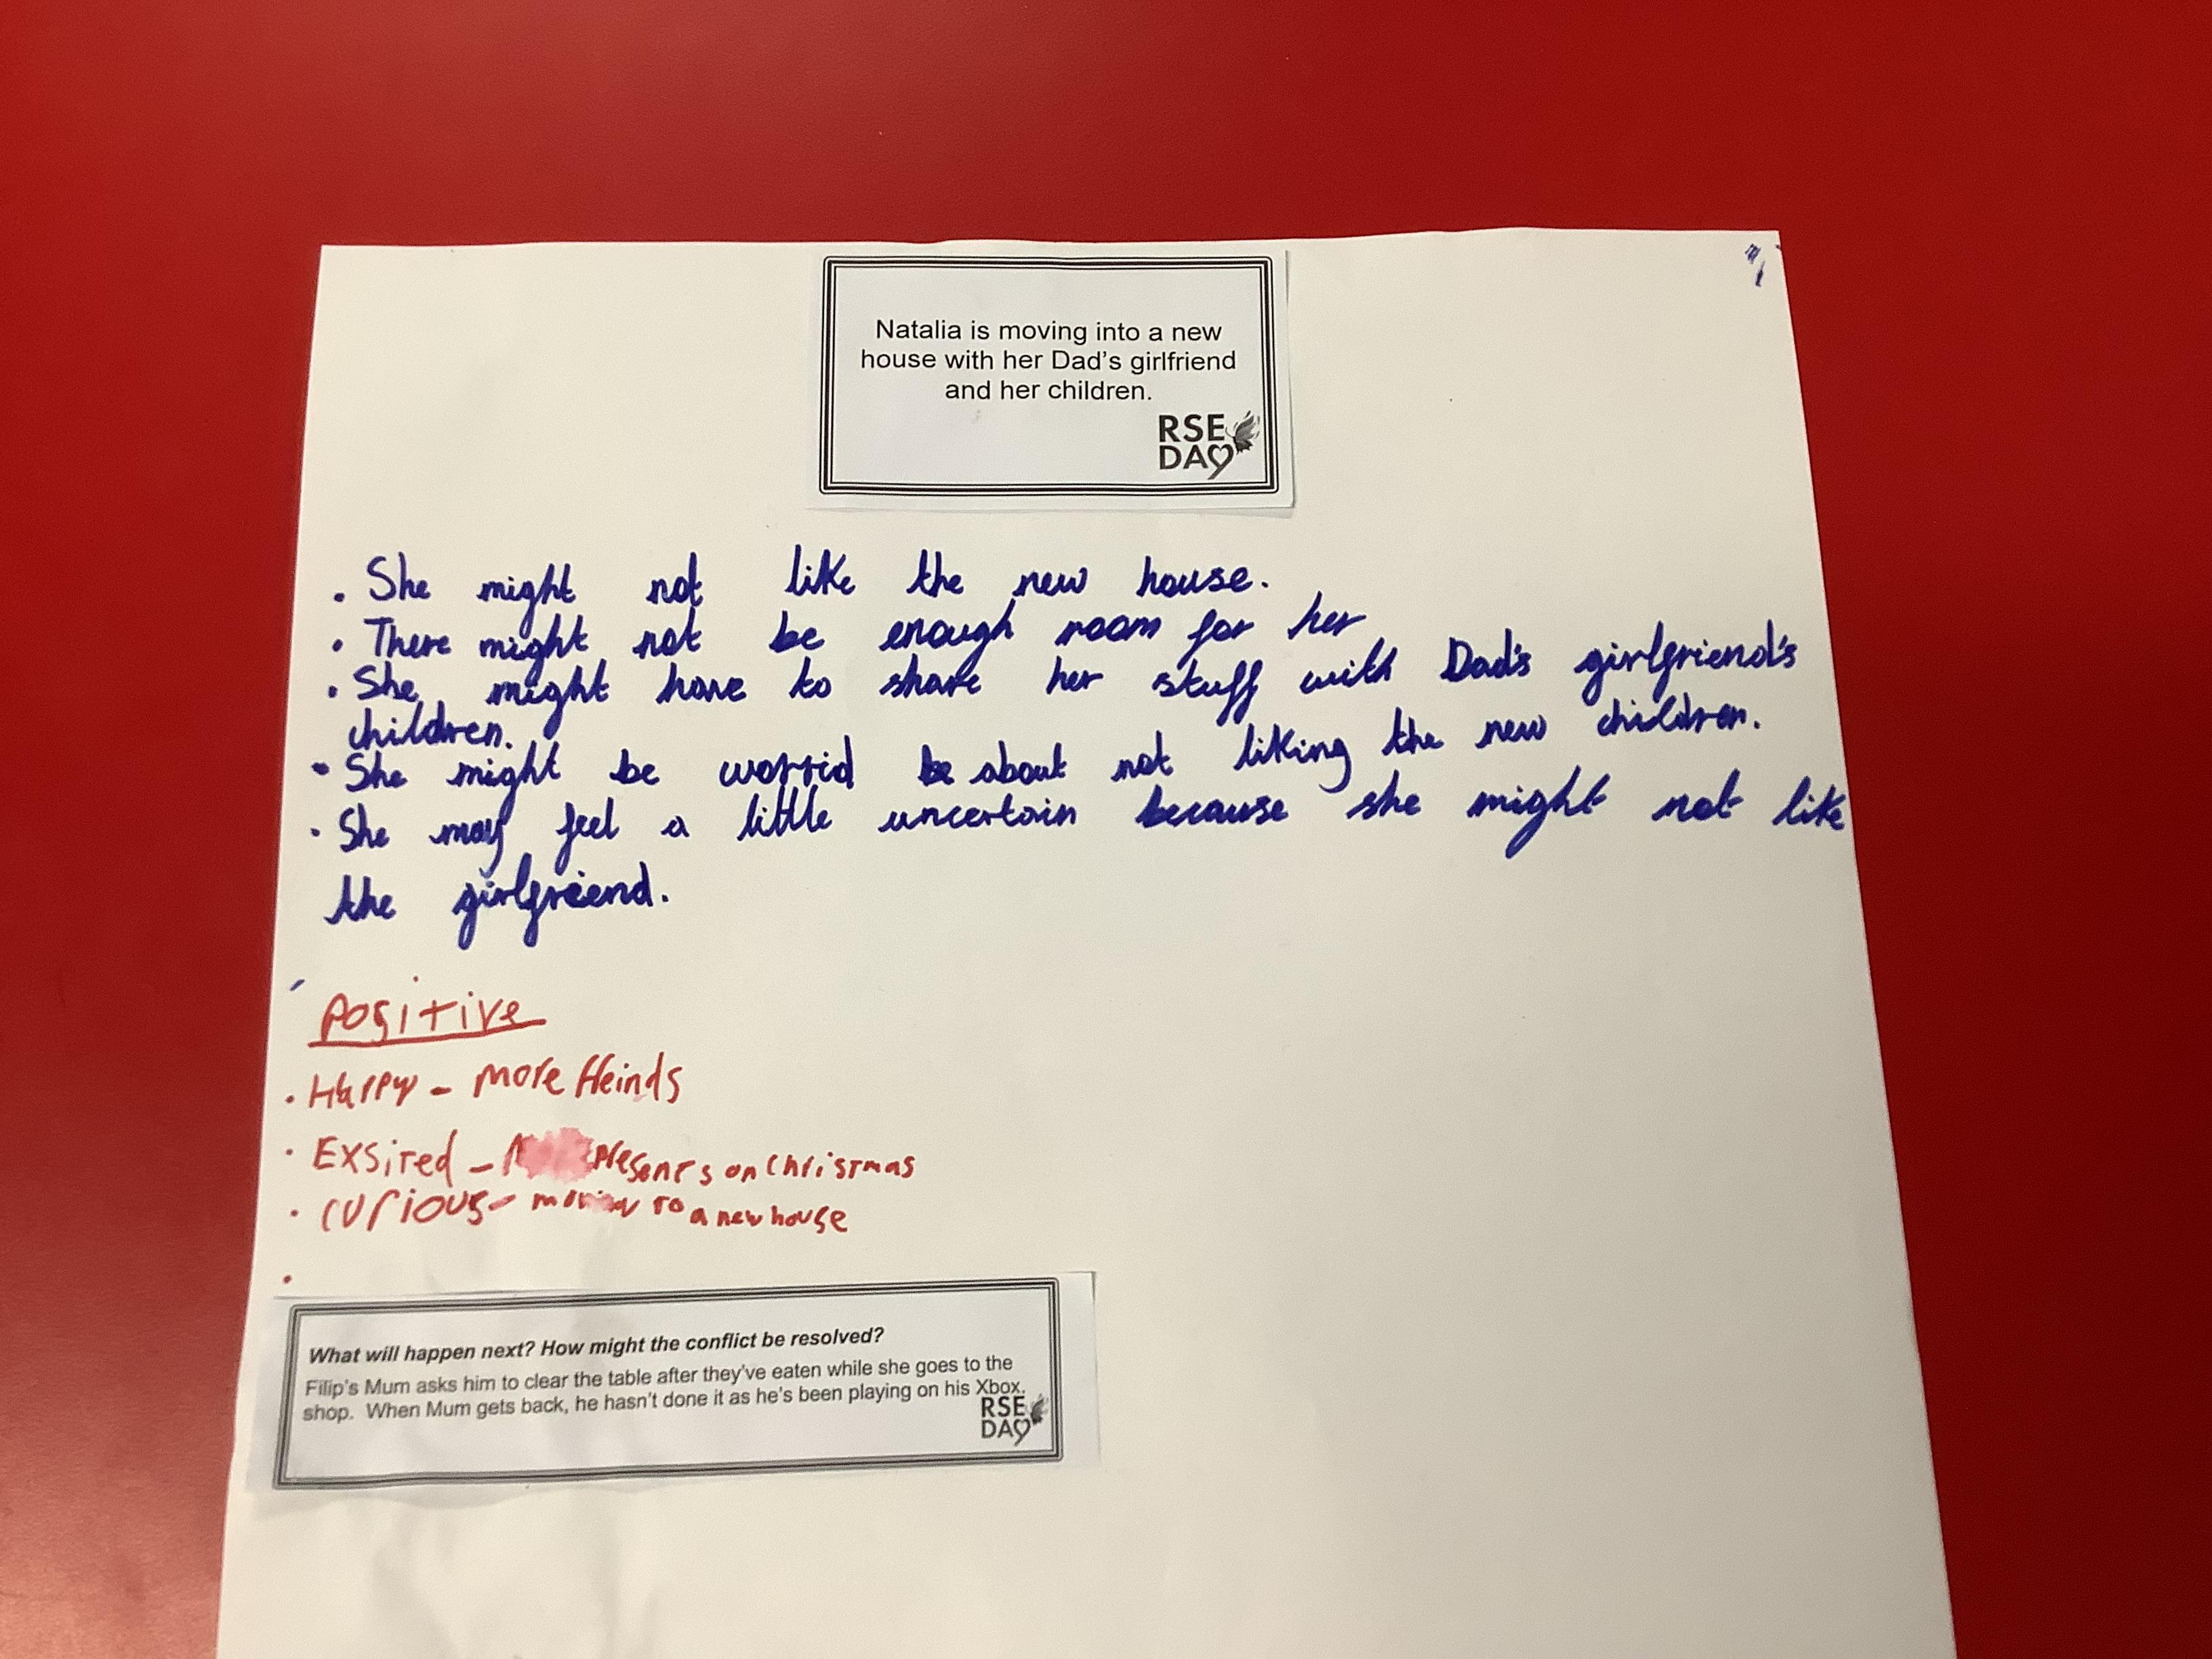 Natalia is moving into a new
house with her Dad's girlfriend
and her children.
RSE
DAY
. She might not like the new house.
. There might not be enough room for her
. She might have to share her stuff with Dad's girlfriend's
children.
. She might be worrid about not liking the new children.
. She may feel a little uncertain because she might not like
the girlfriend.
Positive
. Happy - more freinds
. Exsited - presents on Christmas
. curious - moving to a new house
.
What will happen next? How might the conflict be resolved?
Filip's Mum asks him to clear the table after they've eaten while she goes to the
shop. When Mum gets back, he hasn't done it as he's been playing on his Xbox.
RSE
DAY